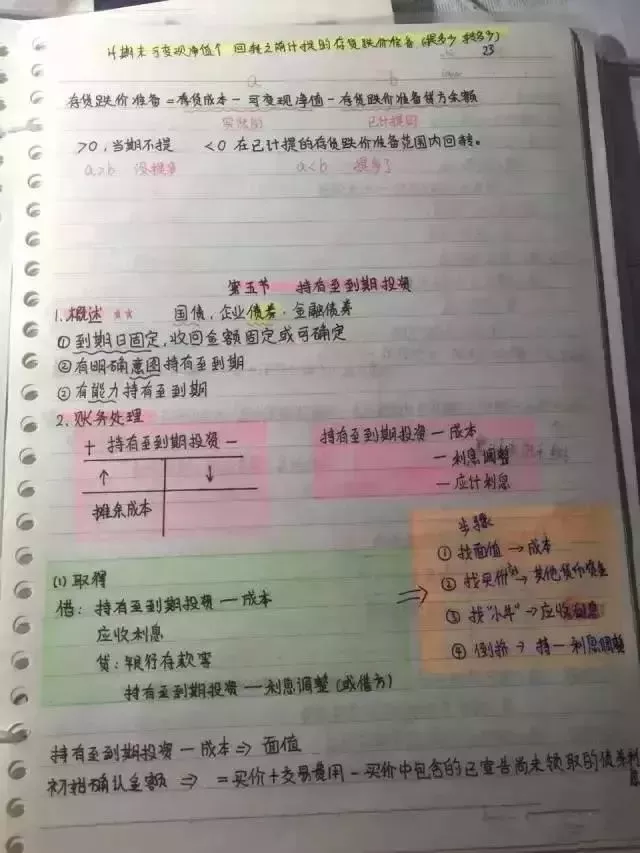 4期末可变现净值↑ 回转之前计提的存货跌价准备(提多少 转多少)
23
a b
存货跌价准备=存货成本-可变现净值-存货跌价准备贷方余额
实际的 已计提的
>0,当期不提 <0 在已计提的存货跌价准备范围内回转。
a>b 没提多 a<b 提多了
第五节 持有至到期投资
1.概述 ☆☆ 国债,企业债券.金融债券
①到期日固定,收回金额固定或可确定
②有明确意图持有至到期
②有能力持有至到期
2.账务处理
+ 持有至到期投资 -
↑ ↓
摊余成本
持有至到期投资 — 成本
— 利息调整
— 应计利息
(1) 取得
借: 持有至到期投资 — 成本
应收利息
贷:银行存款等
持有至到期投资 — 利息调整 (或借方)
⇒
步骤
①找面值 → 成本
②找买价 → 其他货币资金
③找"小半" → 应收利息
④倒挤 → 持 — 利息调整
持有至到期投资 — 成本 ⇒ 面值
初始确认金额 ⇒ =买价+交易费用-买价中包含的已宣告尚未领取的债券利息